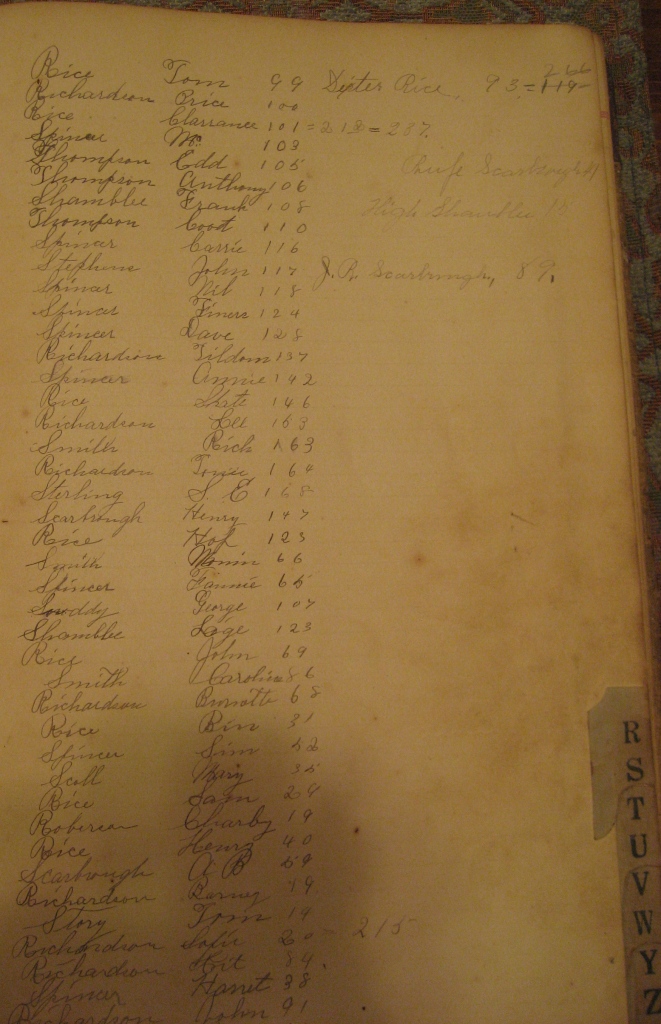 Rice Tom 99 Dexter Rice, 93 = 119 266
Richardson Price 100
Rice Clarrance 101 = 212 = 237.
Spincer Mc 103
Thompson Edd 105
Thompson Anthony 106
Shamblee Frank 108
Thompson Coot 110
Spincer Carrie 116
Stephens John 117 J. R. Scarbrough, 89.
Spincer 118
Spincer 124
Spincer Dave 128
Richardson Tildom 137
Spincer Annie 142
Rice 146
Richardson Lee 153
Smith Rich 163
Richardson 164
Sterling S. E 168
Scarbrough Henry 147
Rice Hof 123
Smith 66
Spincer Fannie 65
Snoddy George 107
Shamblee Page 123
Rice John 69
Smith Caroline 86
Richardson 68
Rice Bin 31
Spincer Sim 52
Scoll Mary 35
Rice Sam 29
Roberson Charby 19
Rice Henry 40
Scarbrough A B 59
Richardson Barney 19
Story Tom 14
Richardson 20 - 215
Richardson Hoit 84
Spincer Harret 38
Richardson John 91
R
S
T
U
V
W
Y
Z